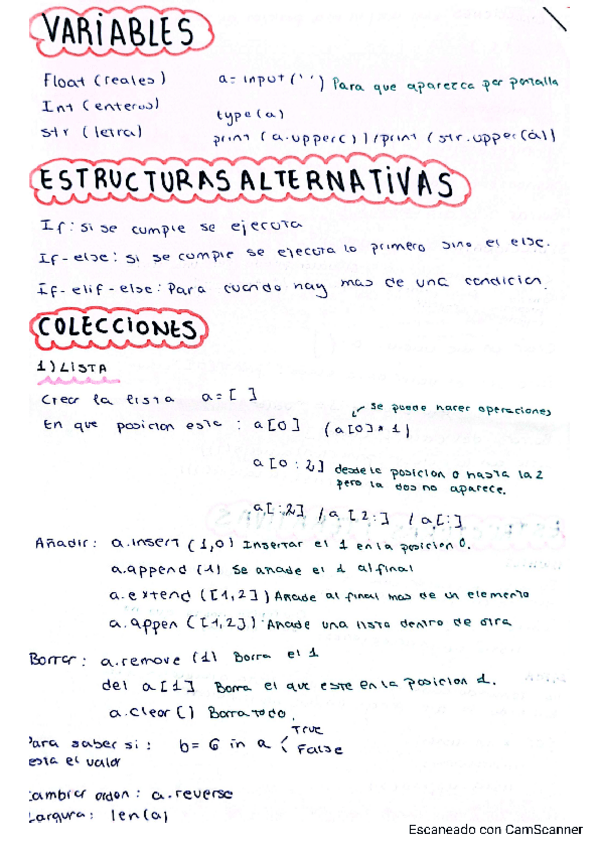 VARIABLES
Float (reales)
a= input ('') Para que aparezca por pantalla
Int (enteros)
type(a)
str (letra)
print (a.upper()) / print (str.upper(a))
ESTRUCTURAS ALTERNATIVAS
If: si se cumple se ejecuta
If-else: si se cumple se ejecuta lo primero sino el else.
If-elif-else: Para cuando hay mas de una condicion.
COLECCIONES
1) LISTA
Crear la lista a=[ ]
se puede hacer operaciones
En que posicion este : a[0] (a[0]* 1)
a[0:2] desde le posicion 0 hasta la 2
pero la dos no aparece.
a[:2] / a[2:] / a[:]
Añadir: a.insert (1,0) Insertar el 1 en la posicion 0.
a.append (1) Se añade el 1 al final
a.extend ([1,2]) Añade al final mas de un elemento
a.appen ([1,2]) Añade una lista dentro de otra
Borrar: a.remove (1) Borra el 1
del a[1] Borra el que este en la posicion 1.
a.clear() Borra todo.
Para saber si: b= 6 in a < True
esta el valor False
Cambiar orden: a.reverse
Largura: len(a)
Escaneado con CamScanner